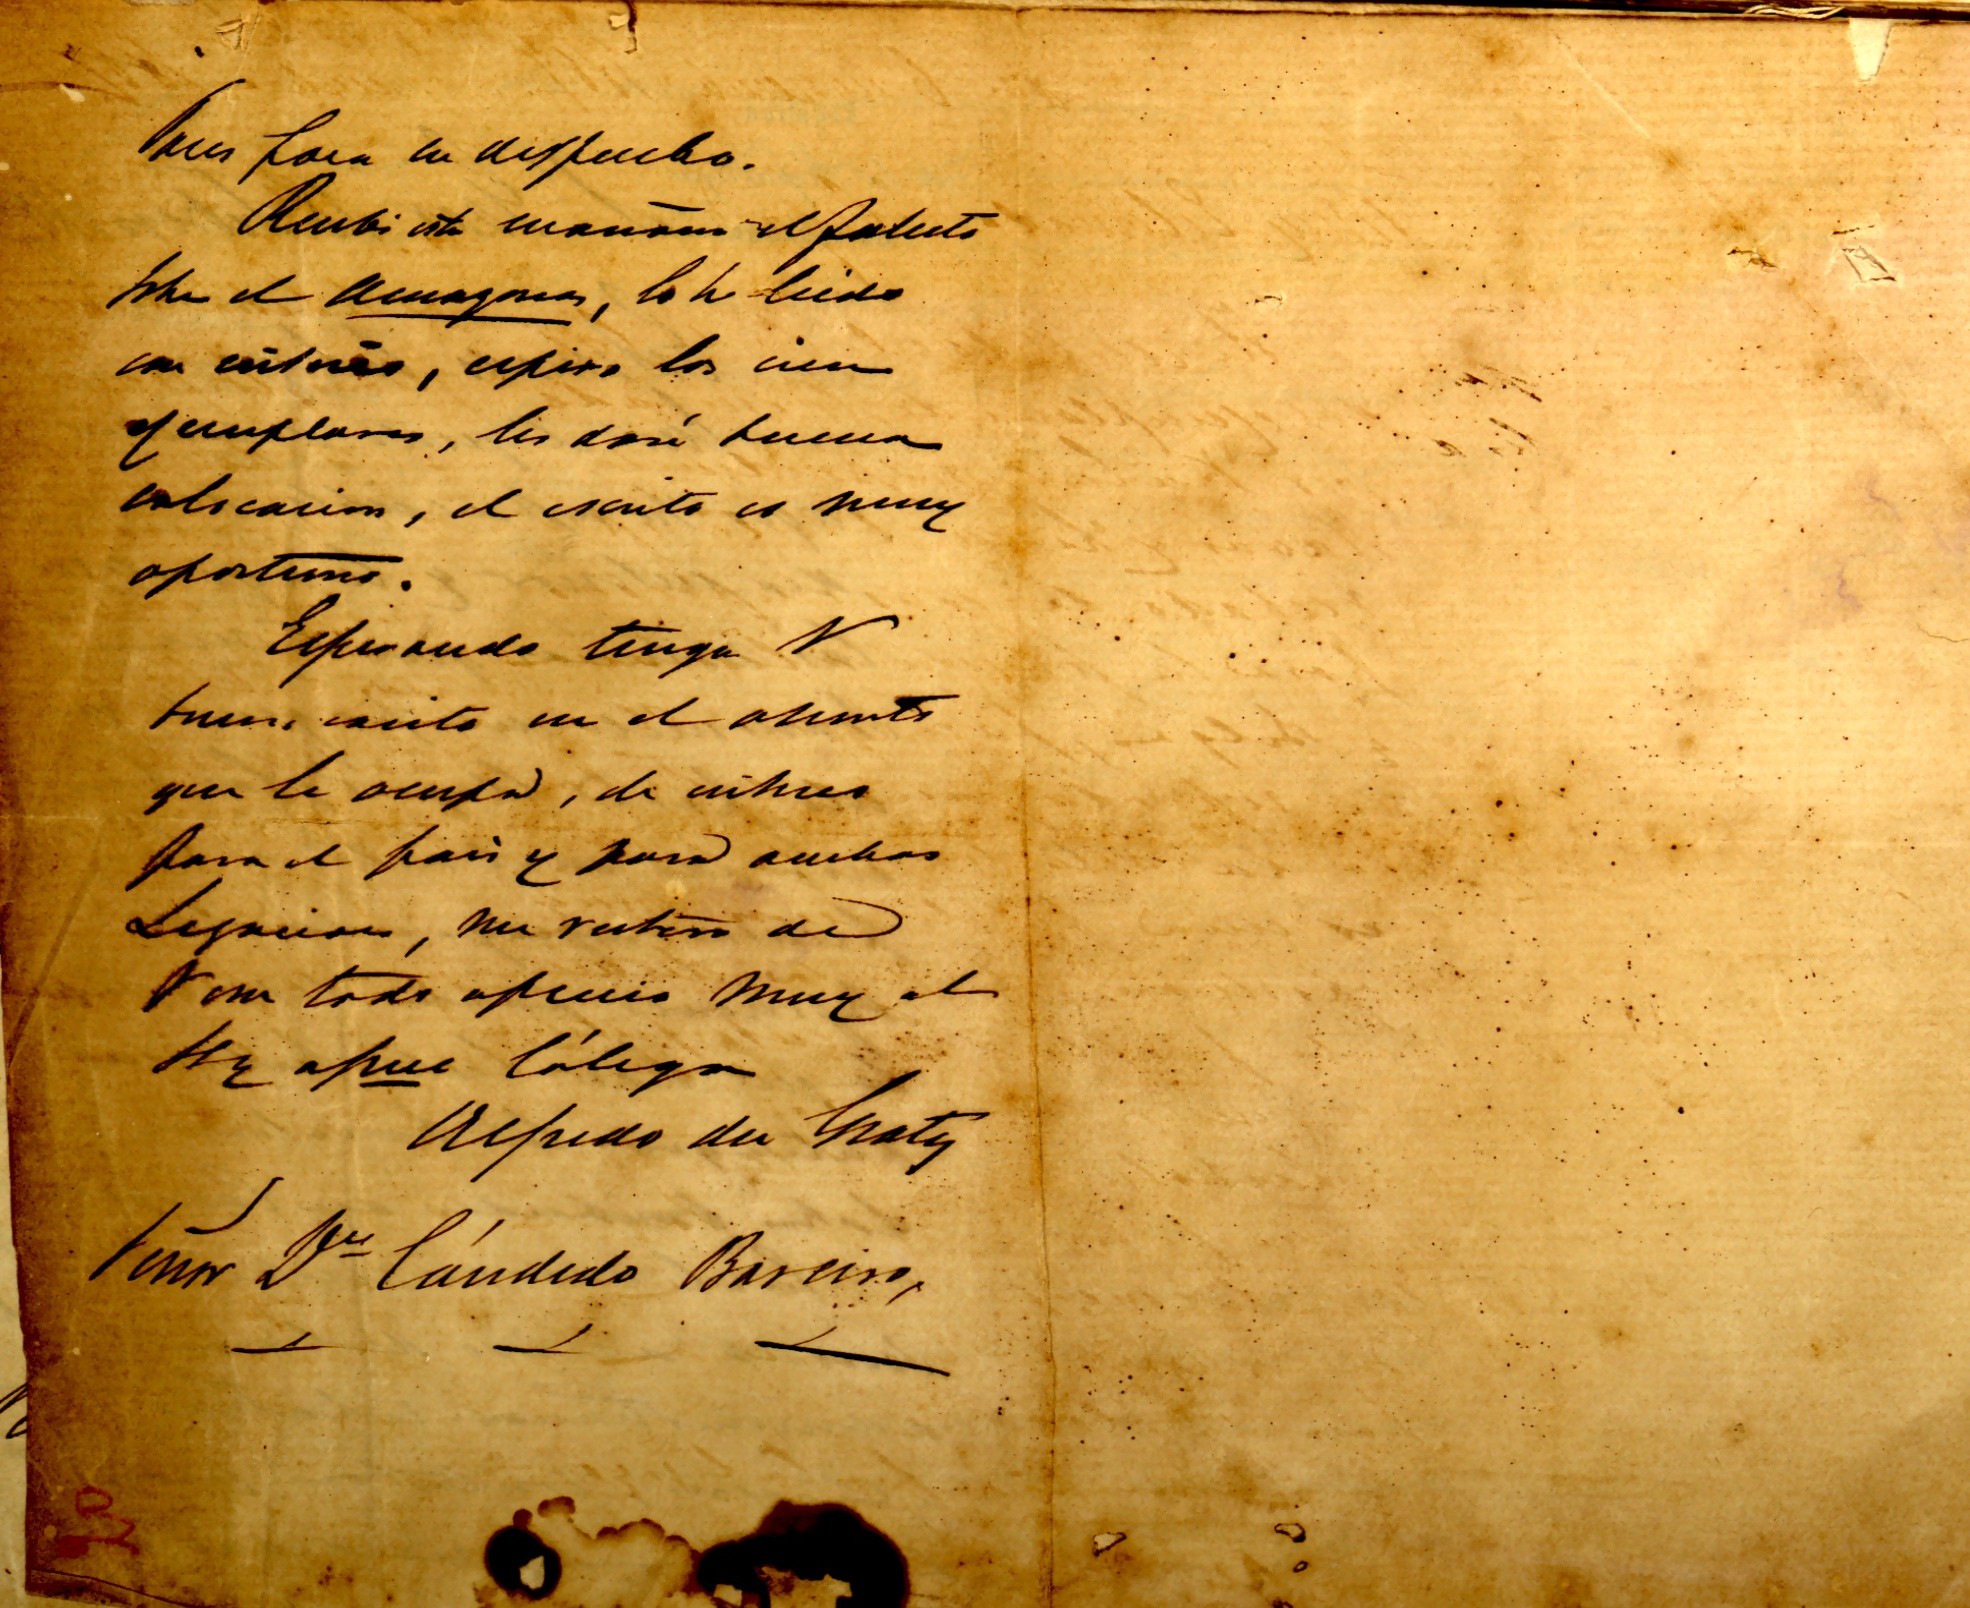 para su despacho.
Recibi esta mañana el folleto
sobre el Amazonas, lo he leido
con interés, espero los cien
ejemplares, les daré buena
colocacion, el escrito es muy
oportuno.
Esperando tenga V
buen exito en el asunto
que le ocupa, de interes
para el pais y para ambas
Legaciones, me reitero de
V con todo aprecio muy at
SS y apme Cólega
Alfredo du Graty
Señor Dn Cándido Bareiro,